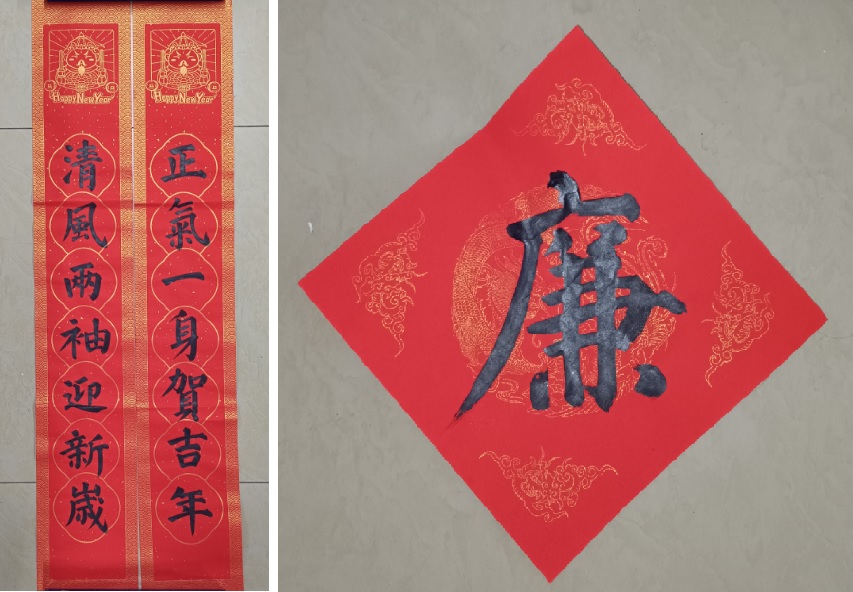 Happy New Year
清風兩袖迎新歲
Happy New Year
正氣一身賀吉年
廉